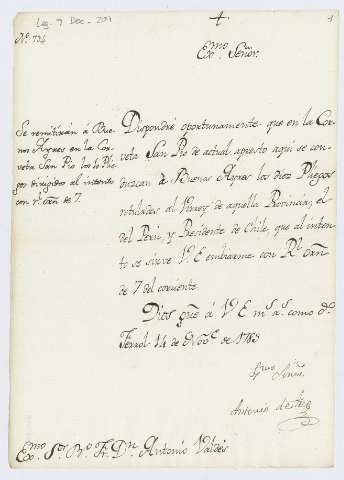 Leg. 7 Doc. 201
1
Nº. 734
Exmo Señor.
Se remitirán á Bue
nos Ayres en la Cor
veta San Pio los 10 Plie
gos dirigidos al intento
con rl. orñ de 7.
Dispondré oportunamente que en la Cor
veta San Pio de actual apresto aqui se con
duzcan à Buenos Ayres los diez Pliegos
rotulados al Virrey de aquella Provincia, el
del Perú, y Presidente de Chile, que al inten
to se sirve V.E embiarme con Rl. orñ
de 7 del corriente.
Dios gue á V.E ms as. como dº.
Ferrol 14 de Novre. de 1783
Exmo Señor.
Antonio de
Exmo Sor. Bº. Fr. Dn. Antonio Valdés